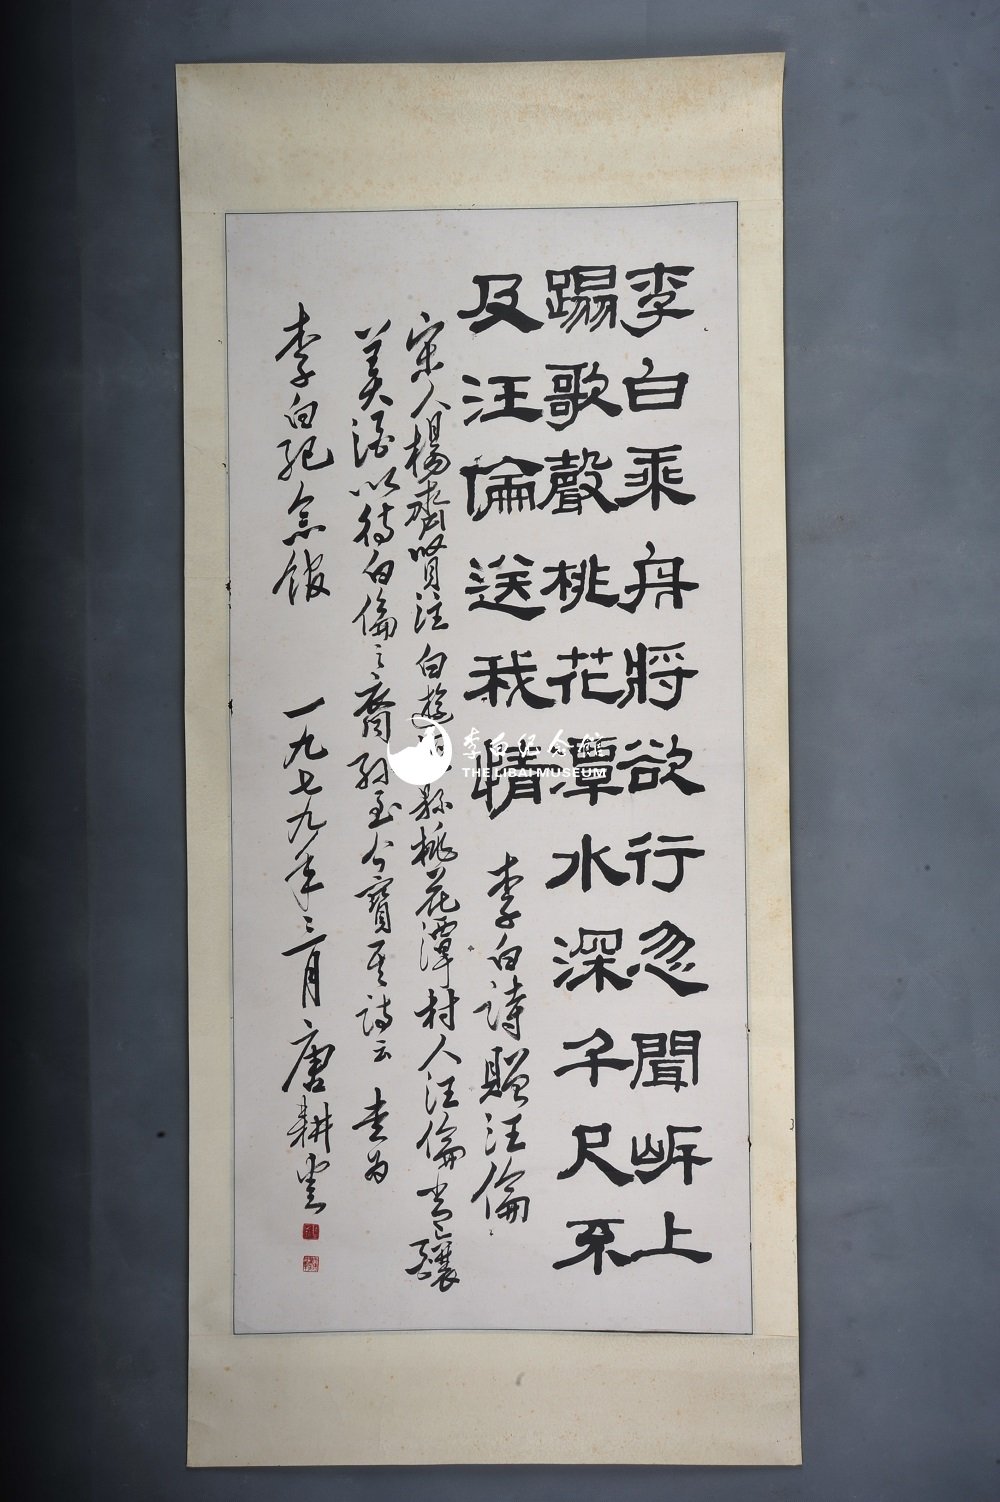 李白乘舟將欲行忽聞岍上
蹋歌聲桃花潭水深千尺不
及汪倫送我情 李白詩贈汪倫
宋人楊齊賢注白遊縣桃花潭村人汪倫常釀
美酒以待白倫之裔孫至今寶其詩云 書為
李白紀念館 一九七九年三月唐耕雲
李白纪念馆
THE LIBAI MUSEUM